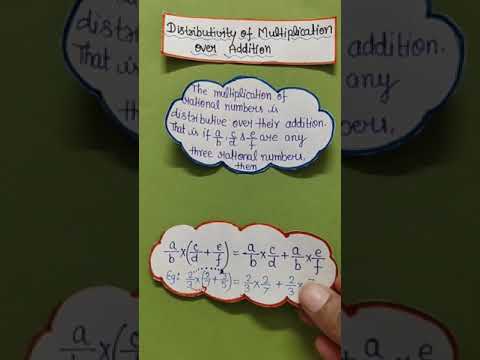 Distributivity of Multiplication
over Addition
The multiplication of
rational numbers is
distributive over their addition.
That is if a/b, c/d & e/f are any
three rational numbers,
then
a/b × (c/d + e/f) = a/b × c/d + a/b × e/f
Eg: 2/3 × (2/7 + /5) = 2/3 × 2/7 + 2/3 ×
addition.
That is
any
numbers,